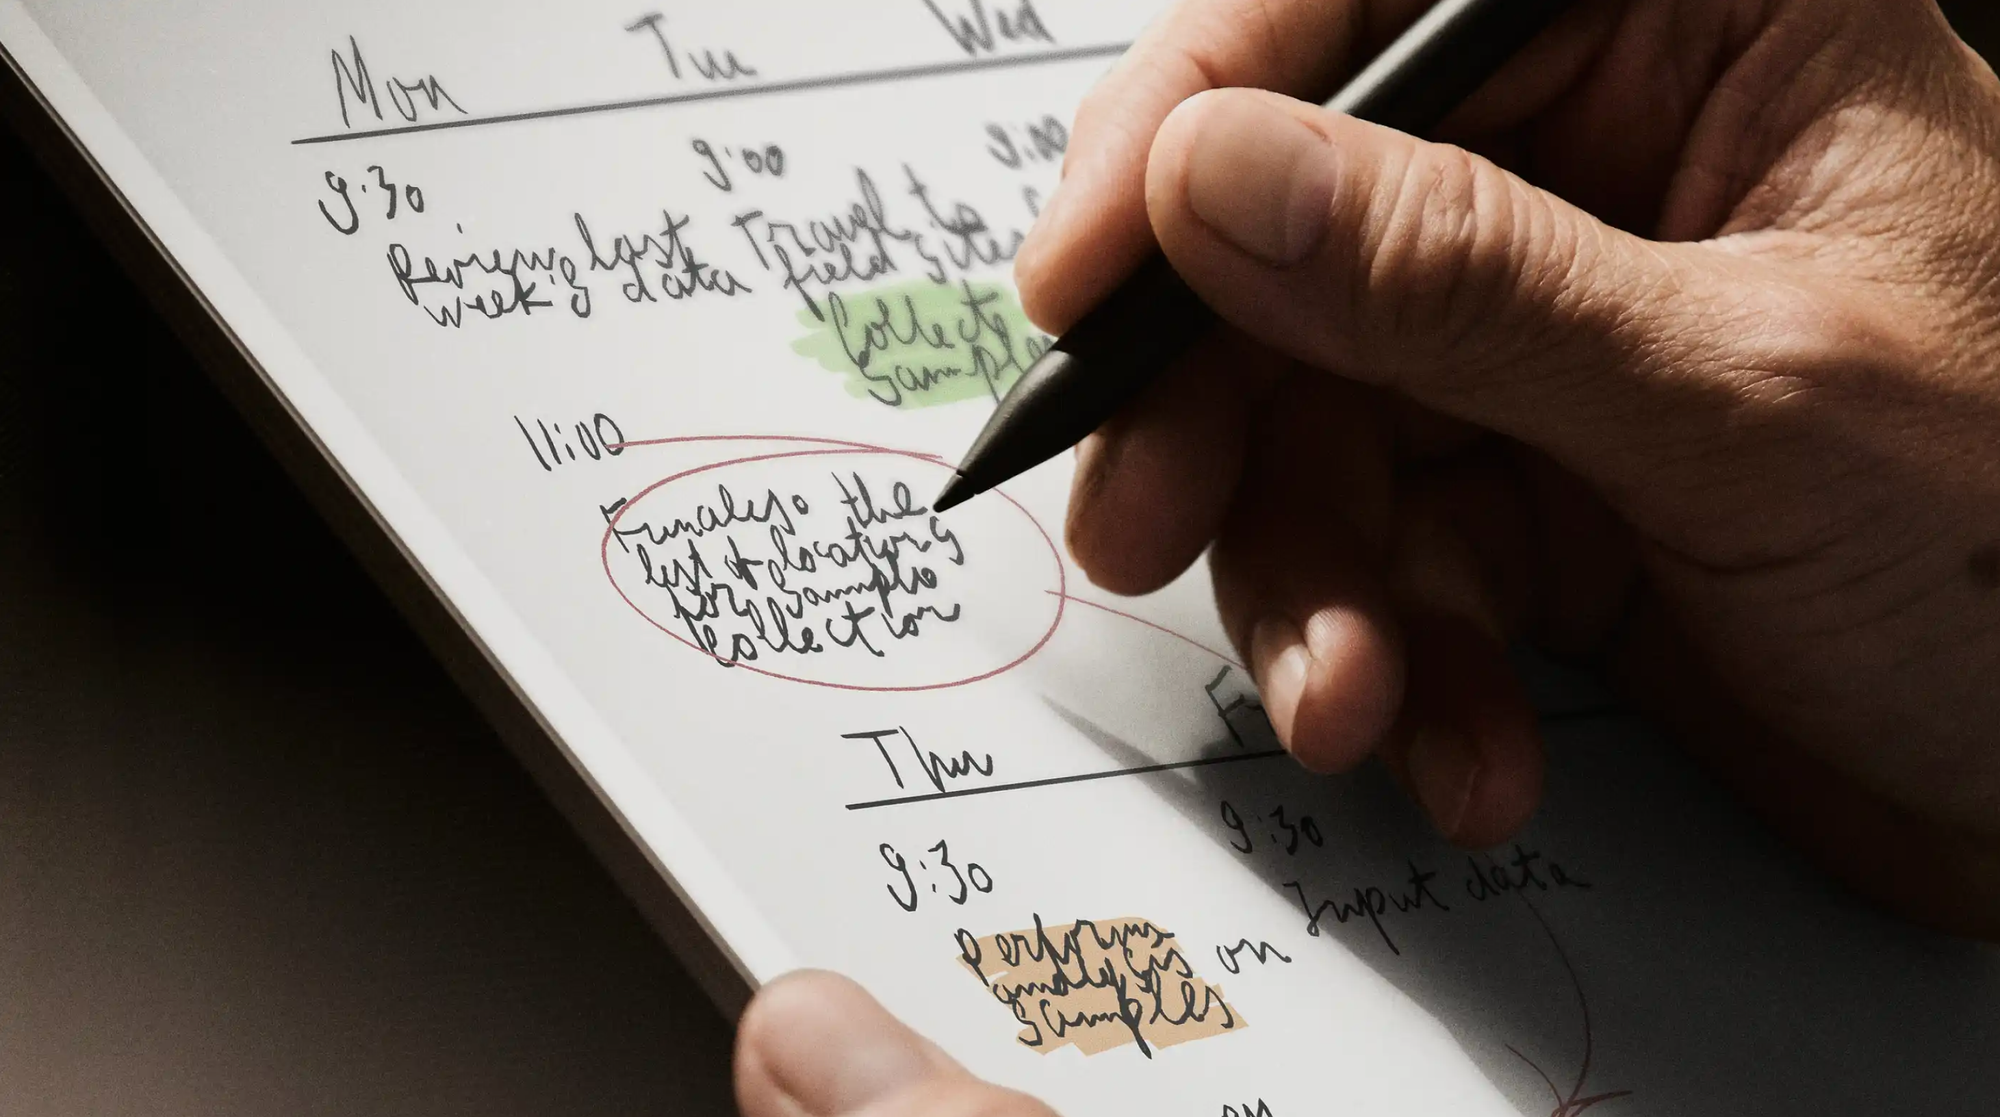 Mon Tue Wed
9:30
Review last
week's data
9:00
Travel to
field sites
Collect
11:00
Finalise the
list of locations
for sample
collection
Thu
9:30
perform on
analysis
samples
9:30
Input data